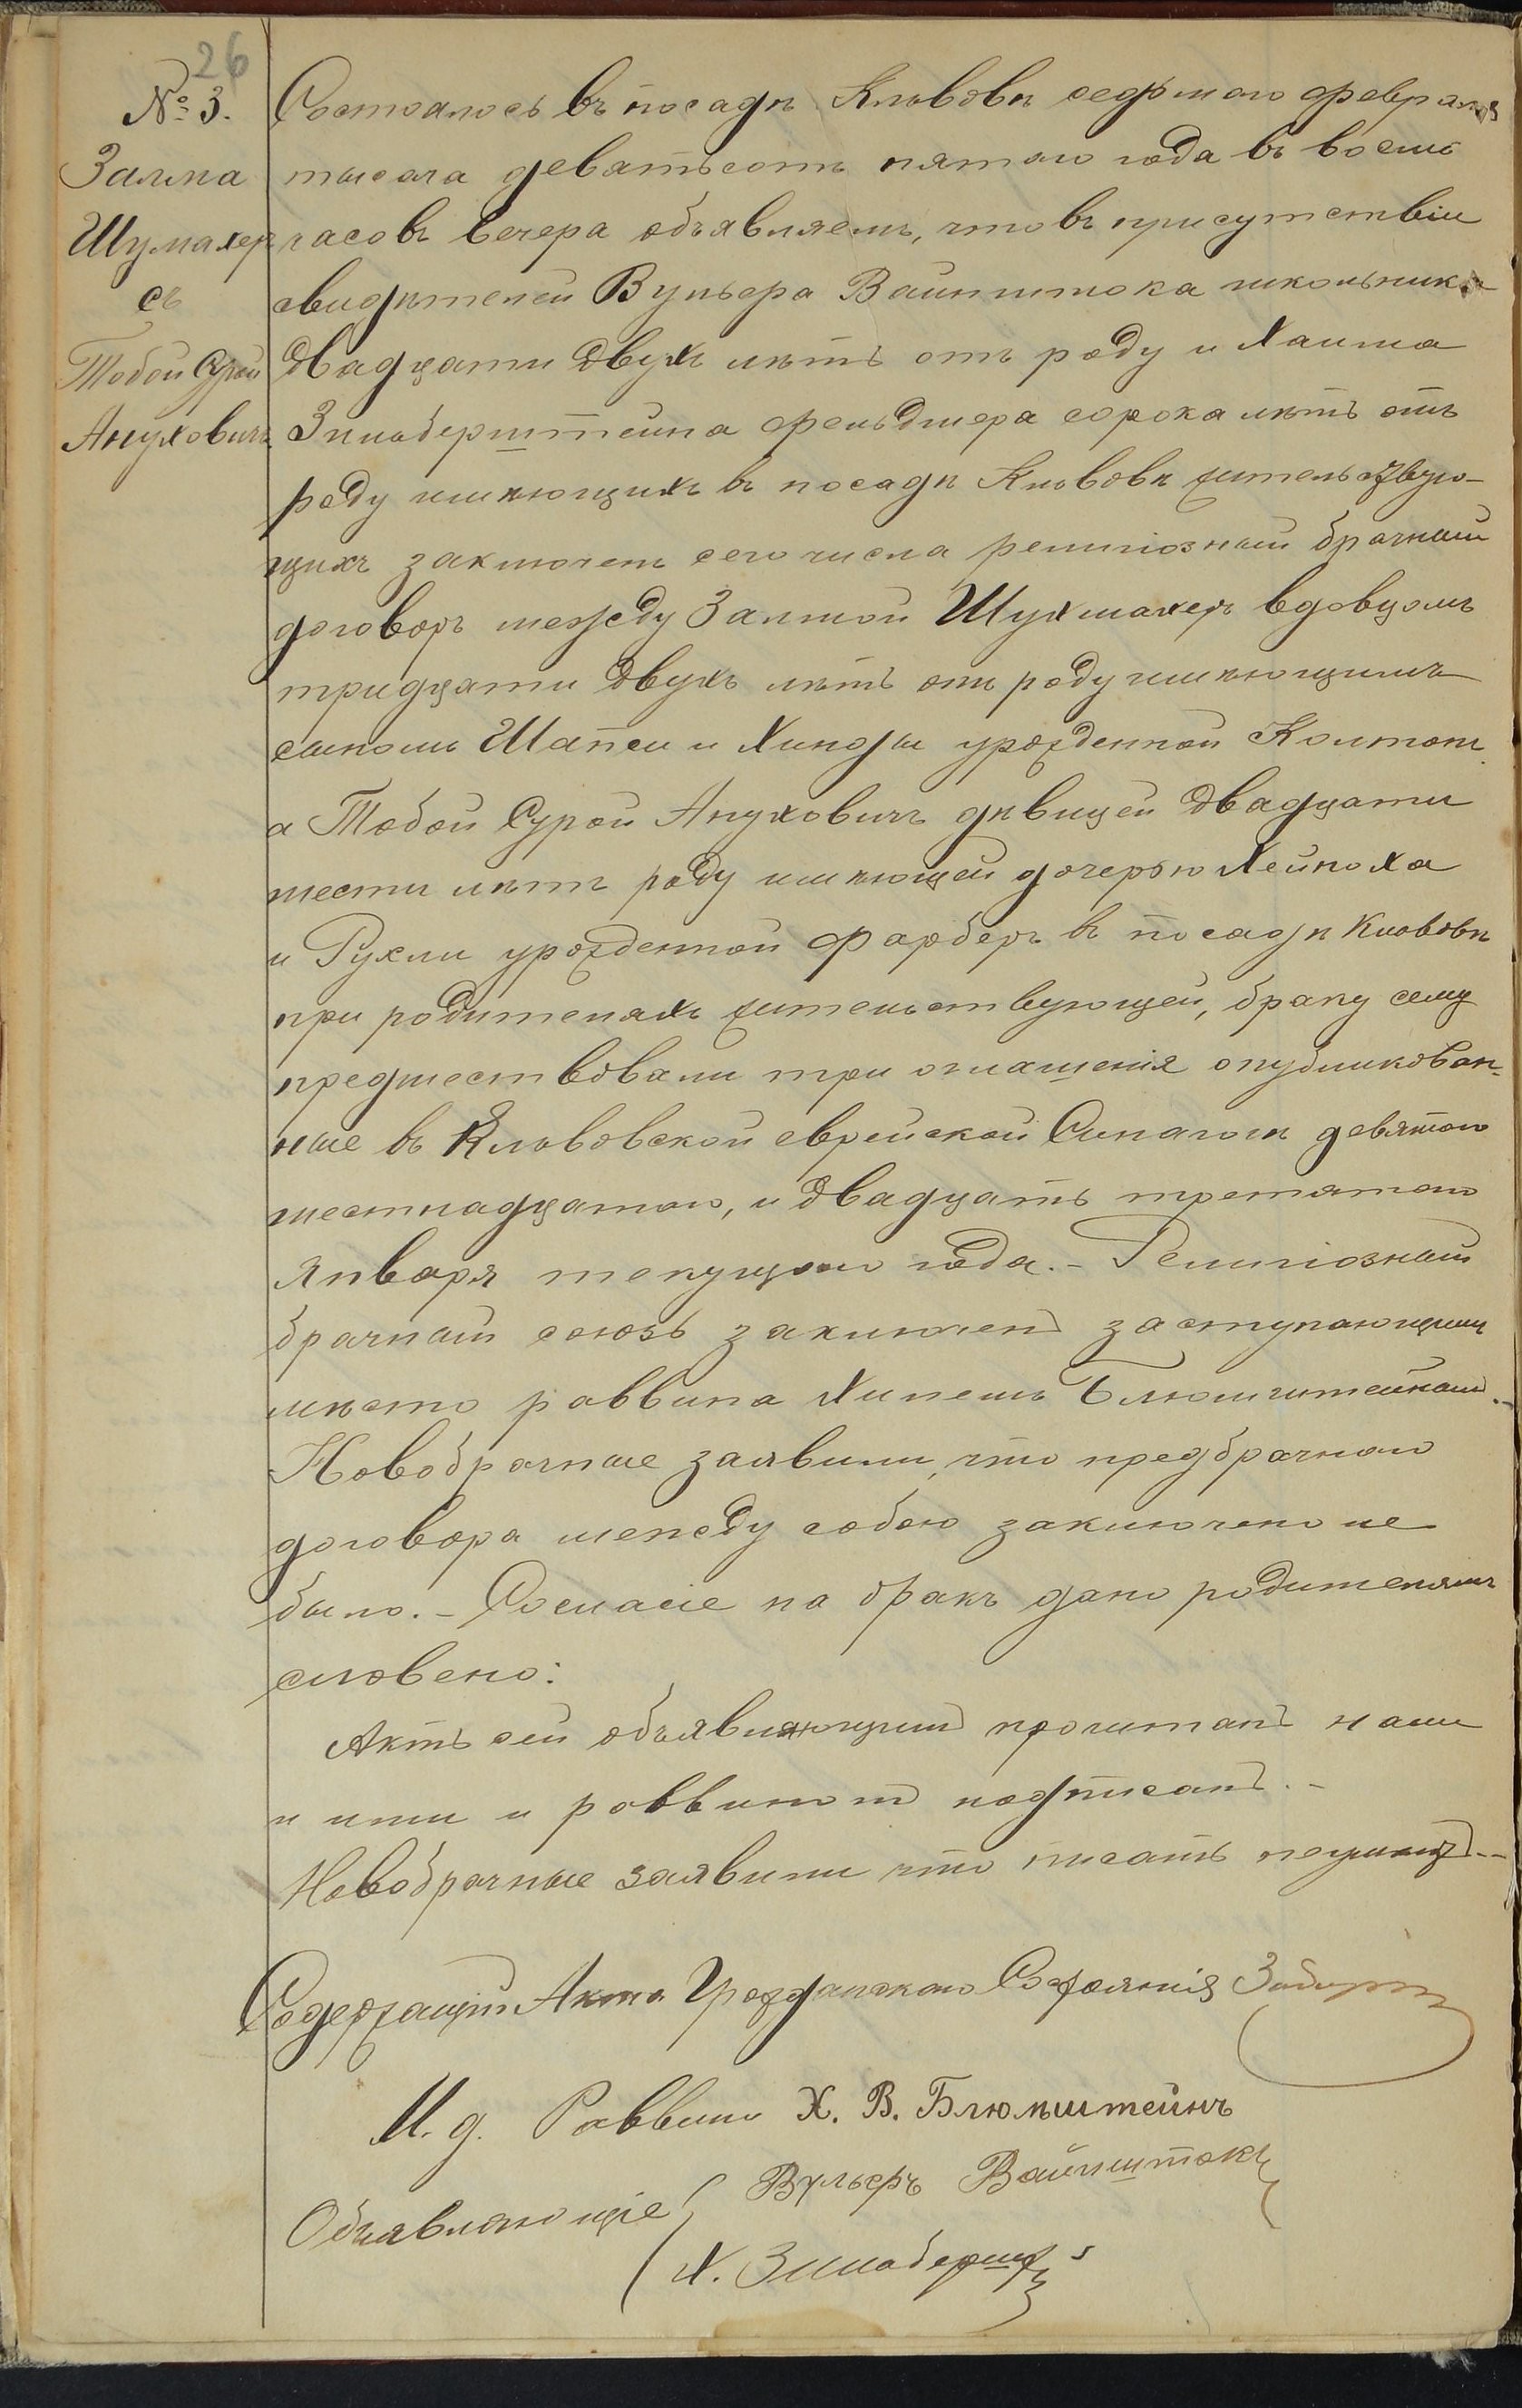 26
№ 3.
Залма
Шумахер
съ
Тобой Сурой
Ануховичъ
Состоялось въ посадѣ Кльвовѣ седьмого февраля
тысяча девятьсотъ пятого года въ восемь
часовъ вечера объявляемъ, что въ присутствіи
свидѣтелей Вульера Вайнштока школьника
двадцати двухъ лѣтъ отъ роду и Хаима
Зильберштейна фельдшера сорока лѣтъ отъ
роду имѣющихъ въ посадѣ Кльвовѣ жительствую-
щихъ заключенъ сего числа религіозный брачный
договоръ между Залмой Шухмахеръ вдовцомъ
тридцати двухъ лѣтъ отъ роду имѣющимъ
сыномъ Шапси и Хинды урожденной Колтонъ
а Тобой Сурой Ануховичъ дѣвицей двадцати
шести лѣтъ роду имѣющей дочерью Хейноха
и Рухли урожденной Фарберъ въ посадѣ Кльвовѣ
при родителяхъ жительствующей, браку сему
предшествовали три оглашенія опубликован-
ные въ Кльвовской еврейской Синагогѣ девятого
шестнадцатого, и двадцать третятого
января текущаго года. - Религіозный
брачный союзъ заключенъ заступающимъ
мѣсто раввина Блюмштейномъ.-
Новобрачные заявили, что предбрачнаго
договора между собою заключено не
было. - Согласіе на бракъ дано родителямъ
словено:
Актъ сей объявляющимъ прочитанъ нами
и ими и раввиномъ подписанъ. -
Новобрачные заявили что писать неумѣютъ. -
Содержащій Акта Гражданскаго Состоянія
И. д. Раввина Х. В. Блюмштейнъ
Объявляющіе Вульеръ Вайнштокъ
Х. Зильбершт